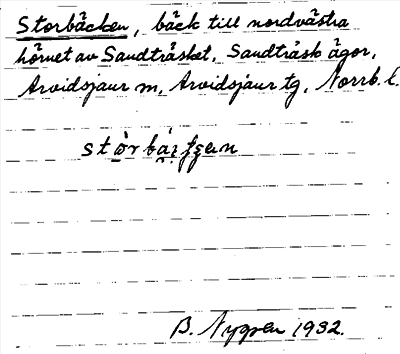 Storbäcken, bäck till nordvästra
hörnet av Sandträsket, Sandträsk ägor,
Arvidsjaur m, Arvidsjaur tg, Norrb. l.
B. Nygren 1932.